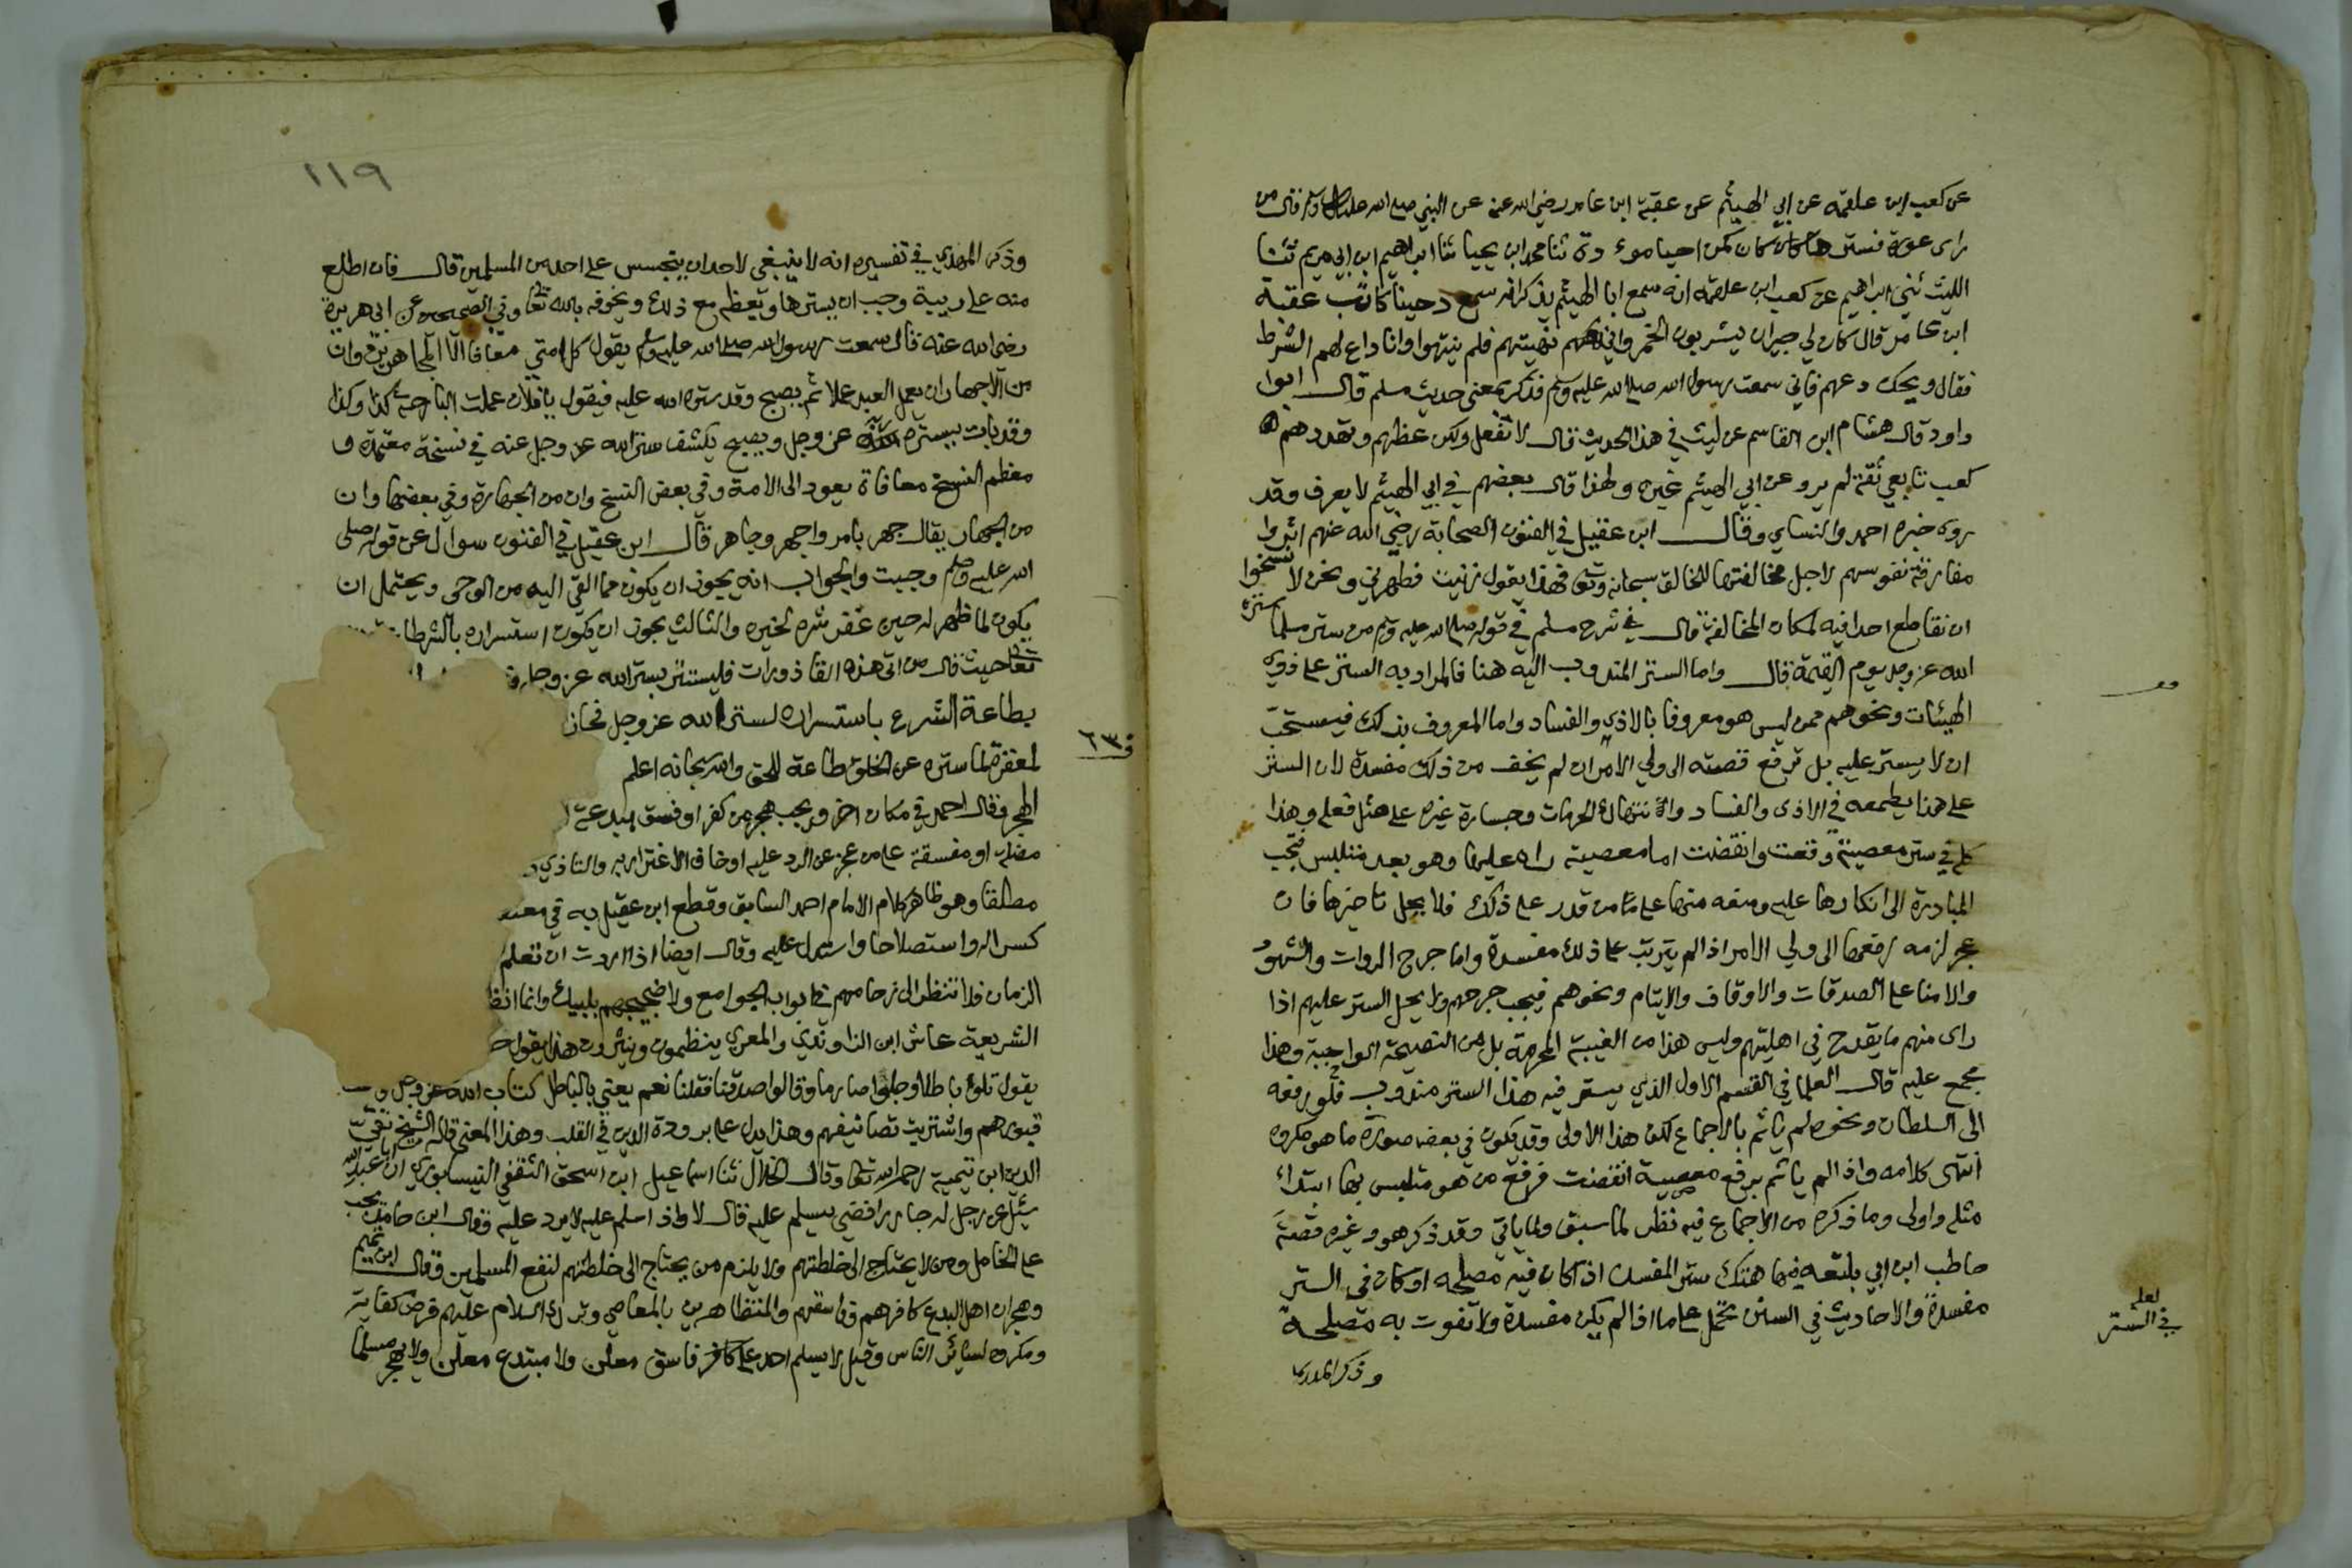 عن كعب ابن علقمه عن ابي الهيثم عن عقبة ابن عامر رضي الله عنه عن النبي صلى الله عليه وسلم قال من
راى عورة فسترها كان كمن احيا موءودة ثنا محمد ابن يحيا ثنا ابراهيم ابن ابي مريم ثنا
الليث ثني ابراهيم عن كعب ابن علقمه انه سمع ابا الهيثم يذكر انه سمع دحينا كاتب عقبة
ابن عامر قال كان لي جيران يشربون الخمر واني نهيتهم فلم ينتهوا وانا داع لهم الشرط
فقال ويحك دعهم فاني سمعت رسول الله صلى الله عليه وسلم فذكر بمعنى حديث مسلم قال ابوا
داود قال هشام ابن القاسم عن ليث في هذا الحديث قال لا تفعل ولكن عظهم وتهددهم
كعب تابعي ثقة لم يرو عن ابي الهيثم غيره ولهذا قال بعضهم في ابي الهيثم لا يعرف وقد
روى خبره احمد والنساي وقال ابن عقيل في الفنون الصحابة رضي الله عنهم اثروا
مفارقة نفوسهم لاجل مخالفتها للخالق سبحانه وتعا فهذا يقول زنيت فطهرني ونحن لا نسخوا
ان نقاطع احدا فيه لمكان المخالفة قال في شرح مسلم في قوله صلى الله عليه وسلم من ستر مسلما ستره
الله عز وجل يوم القيمة قال واما الستر المندوب اليه هنا فالمراد به الستر على ذوي
الهيئات ونحوهم ممن ليس هو معروفا بالاذي والفساد واما المعروف بذلك فيستحب
ان لا يستر عليه بل ترفع قصته الى ولي الامر ان لم يخف من ذلك مفسدة لان الستر
على هذا يطمعه في الاذى والفساد وانتهاك الحرمات وجسارة غيره على مثل فعله وهذا
كله في ستر معصية وقعت وانقضت اما معصية راه عليها وهو بعد متلبس فتجب
المبادرة الى انكارها عليه ومنعه منها على من قدر على ذلك فلا يحل تاخيرها فان
عجز لزمه رفعها الى ولي الامر اذا لم يترتب على ذلك مفسدة واما جرح الروات والشهود
والامنا على الصدقات والاوقاف والايتام ونحوهم فيجب جرحهم ولا يحل الستر عليهم اذا
راى منهم ما يقدح في اهليتهم وليس هذا من الغيبة المحرمة بل من النصيحة الواجبة وهذا
مجمع عليه قال العلما في القسم الاول الذي يستر فيه هذا الستر مندوب فلو رفعه
الى السلطان ونحوه لم ياثم بالاجماع لكن هذا الاولى وقد يكون في بعض صوره ما هو مكروه
انتهى كلامه واذا لم ياثم برفع معصية انقضت فرفع من هو متلبس بها ابتداء
مثله واولى وما ذكره من الاجماع فيه نظر لما سبق ولما ياتي وقد ذكر هو وغيره قصة
حاطب ابن ابي بلتعه فيها هتك ستر المفسد اذا كان فيه مصلحه او كان في الستر
مفسدة والاحاديث في الستر تحمل على ما اذا لم يكن مفسدة ولا تفوت به مصلحة
لعله
في الستر
وذكر المهدي
١١٩
وذكر المهدي في تفسيره انه لا ينبغي لاحد ان يتجسس على احد من المسلمين قال فان اطلع
منه على ريبة وجب ان يسترها ويعظه مع ذلك ويخوفه بالله تعا وفي الصحيحين عن ابي هريرة
رضي الله عنه قال سمعت رسول الله صلى الله عليه وسلم يقول كل امتي معافا الا المجاهرين وان
من الاجهار ان يعمل العبد عملا ثم يصبح وقد ستره الله عليه فيقول يا فلان عملت البارحة كذا وكذا
وقد بات يستره الله عز وجل ويصبح يكشف ستر الله عز وجل عنه في نسخة معتمدة و
معظم النسخ معافاة يعود الى الامة وفي بعض النسخ وان من الجهارة وفي بعضها وان
من الجهار يقال جهر بامر واجهر وجاهر قال ابن عقيل في الفنون سوال عن قوله صلى
الله عليه وسلم وجبت والجواب انه يجوز ان يكون مما القي اليه من الوحى ويحتمل ان
يكون لما ظهر له حين غفر شره لخيره والثالث يجوز ان يكون استسراره بالشر طاعة
تعا حيث قال من اتى هذه القاذورات فليستتر بستر الله عز وجل
بطاعة الشرع باستسراره لستر الله عز وجل فجازا
لمغفرة لما ستره عن الخلق طاعة للحق والله سبحانه اعلم
الهجر وقال احمد في مكان اخر ويجب هجر من كفر او فسق ببدعة
مضلة او مفسقة على من عجز عن الرد عليه او خاف الاغترار به والتاذي
مطلقا وهو ظاهر كلام الامام احمد السابق وقطع ابن عقيل به في معتقده
كسرا له واستصلاحا واستدل عليه وقال ايضا اذا اردت ان تعلم
الزمان فلا تنظر الى زحامهم في ابواب الجوامع ولا ضجيجهم بلبيك وانما انظر
الشريعة عاش ابن الراوندي والمعري ينظمون وينثرون هذا يقول
يقول تلوا باطلا وجلوا صارما وقالوا صدقنا فقلنا نعم يعني بالباطل كتاب الله عز وجل و
قبورهم واشتريت تصانيفهم وهذا يدل على برودة الدين في القلب وهذا المعنى قاله الشيخ تقي
الدين ابن تيمية رحمه الله تعا وقال الخلال ثنا اسماعيل ابن اسحق الثقفي النيسابوري ان ابا عبد الله
سئل عن رجل له جار رافضي يسلم عليه قال لا واذا سلم عليه لا يرد عليه وقال ابن حامد يجب
على الخامل ومن لا يحتاج الى خلطتهم ولا يلزم من يحتاج الى خلطتهم لنفع المسلمين وقال ابن تميم
وهجران اهل البدع كافرهم وفاسقهم والمتظاهرين بالمعاصي وترك السلام عليهم فرض كفاية
ومكروه لسائر الناس وقيل لا يسلم احد على فاسق معلن ولا مبتدع معلن ولا يهجر مسلما